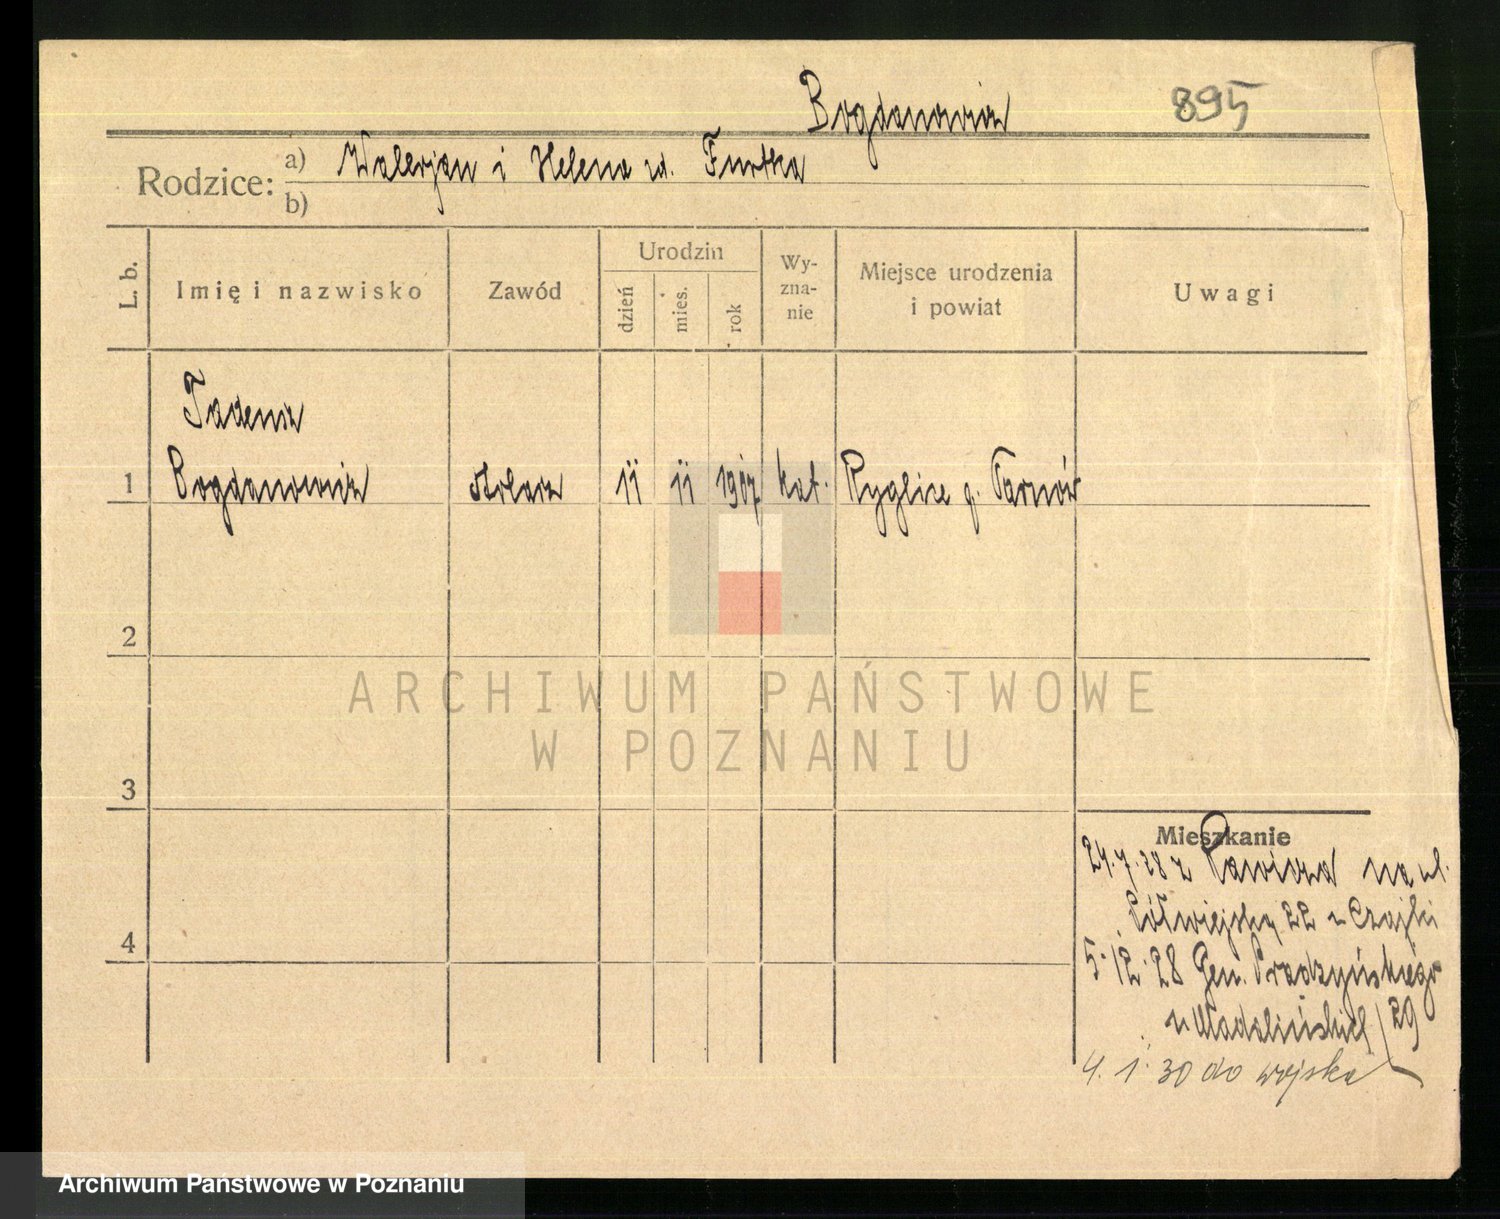 Bogdanowicz 895
Rodzice: a) Walerjan i Helena zd. Furtka
b)
L. b. Imię i nazwisko Zawód Urodzin dzień mies. rok Wy-zna-nie Miejsce urodzenia i powiat Uwagi
Tadeusz
1 Bogdanowicz stolarz 11 11 1907 kat. Ryglice p. Tarnów
2
ARCHIWUM PAŃSTWOWE
W POZNANIU
3
Mieszkanie
24.7.28 z Rawicza na ul.
Półwiejską 22 u Czajki
4
5.12.28 Gen. Prądzyńskiego
u Madalińskich 29
4.1.30 do wojska
Archiwum Państwowe w Poznaniu